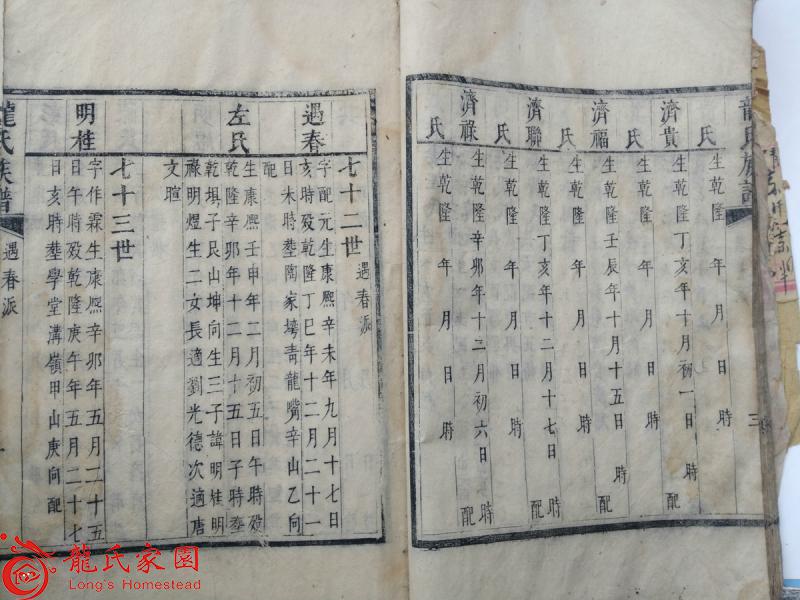 龍氏族譜
三
氏
生乾隆 年 月 日 時
濟貴
生乾隆丁亥年十月初一日 時 配
氏
生乾隆 年 月 日 時
濟福
生乾隆壬辰年十月十五日 時 配
氏
生乾隆 年 月 日 時
濟聯
生乾隆丁亥年十二月十七日 時 配
氏
生乾隆 年 月 日 時
濟祿
生乾隆辛卯年十二月初六日 時 配
氏
生乾隆 年 月 日 時
七十二世 遇春派
遇春
字配元生康熙辛未年九月十七日
亥時歿乾隆丁巳年十二月二十一
日未時塟陶家塆青龍嘴辛山乙向
配
左氏
生康熙壬申年二月初五日午時歿
乾隆辛卯年十二月十五日子時塟
乾埧子艮山坤向生三子諱明桂明
祿明煜生二女長適劉光德次適唐
文暄
七十三世
明桂
字作霖生康熙辛卯年五月二十五
日午時歿乾隆庚午年五月二十七
日亥時塟學堂溝嶺甲山庚向配
龍氏族譜
遇春派
一
龍氏家園
Long's Homestead